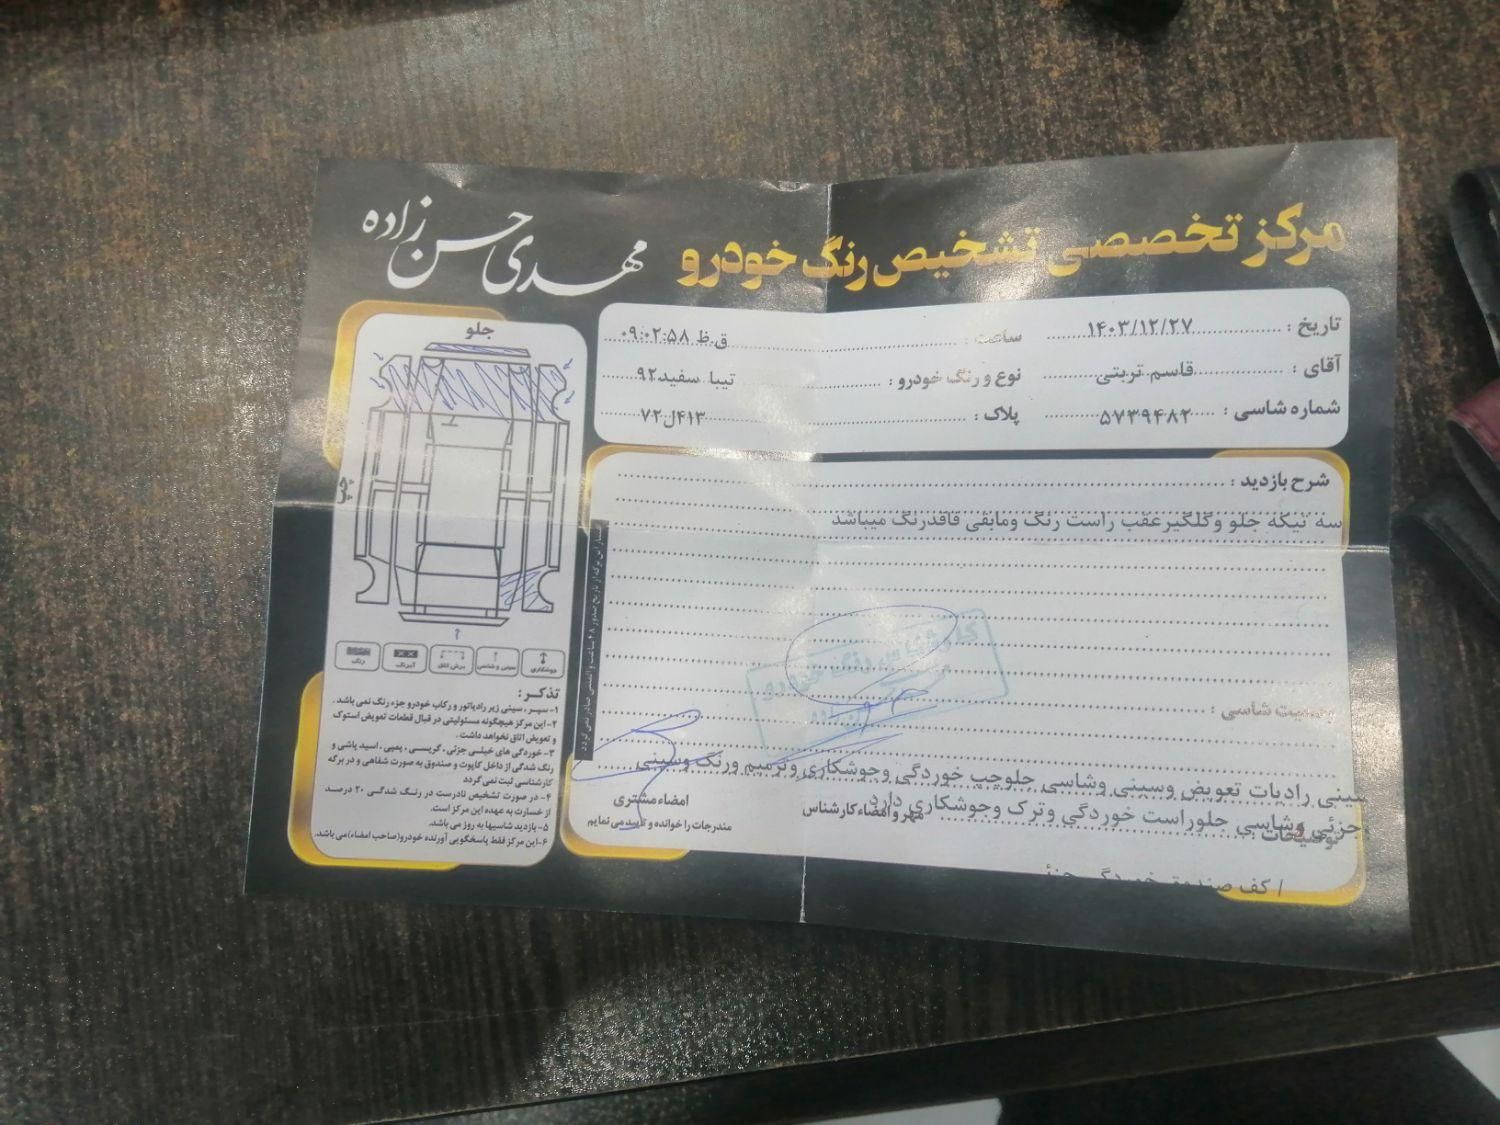 مرکز تخصصی تشخیص رنگ خودرو
مهدی حسن زاده
تاریخ : ۱۴۰۳/۱۲/۲۷
ساعت : ۰۹:۰۲:۵۸ ق.ظ
آقای : قاسم تربتی
نوع و رنگ خودرو : تیبا سفید۹۲
شماره شاسی : ۵۷۳۹۴۸۲
پلاک : ۴۱۳ل۷۲
شرح بازدید :
سه تیکه جلو وگلگیرعقب راست رنگ ومابقی فاقدرنگ میباشد
وضعیت شاسی :
سینی رادیات تعویض وسینی وشاسی جلوچپ خوردگی وجوشکاری وترمیم ورنگ وسینی
جزئی وشاسی جلوراست خوردگی وترک وجوشکاری دارد
توضیحات
مهر و امضاء کارشناس
امضاء مشتری
مندرجات را خوانده و تایید می نمایم
/ کف صندوق خوردگی جزئی
جلو
چپ
جوشکاری
سینی و شاسی
برش اتاق
آبرنگ
رنگ
تذکر :
۱- سپر ، سینی زیر رادیاتور و رکاب خودرو جزء رنگ نمی باشد .
۲- این مرکز هیچگونه مسئولیتی در قبال قطعات تعویض استوک
و تعویض اتاق نخواهد داشت .
۳- خوردگی های خیلی جزئی ، گریسی ، پمپی ، اسید پاشی و
رنگ شدگی از داخل کاپوت و صندوق به صورت شفاهی و در برگه
کارشناسی ثبت نمی گردد
۴- در صورت تشخیص نادرست در رنگ شدگی ۲۰ درصد
از خسارت به عهده این مرکز است.
۵- بازدید شاسیها به روز می باشد.
۶- این مرکز فقط پاسخگویی آورنده خودرو(صاحب امضاء)می باشد.
اعتبار این برگه از تاریخ صدور ۴۸ ساعت و المثنی صادر نمی گردد
کارشناس رنگ خودرو